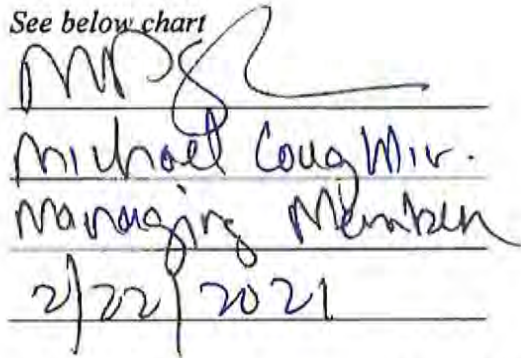 See below chart
Michael
Managing Member
2/22/2021